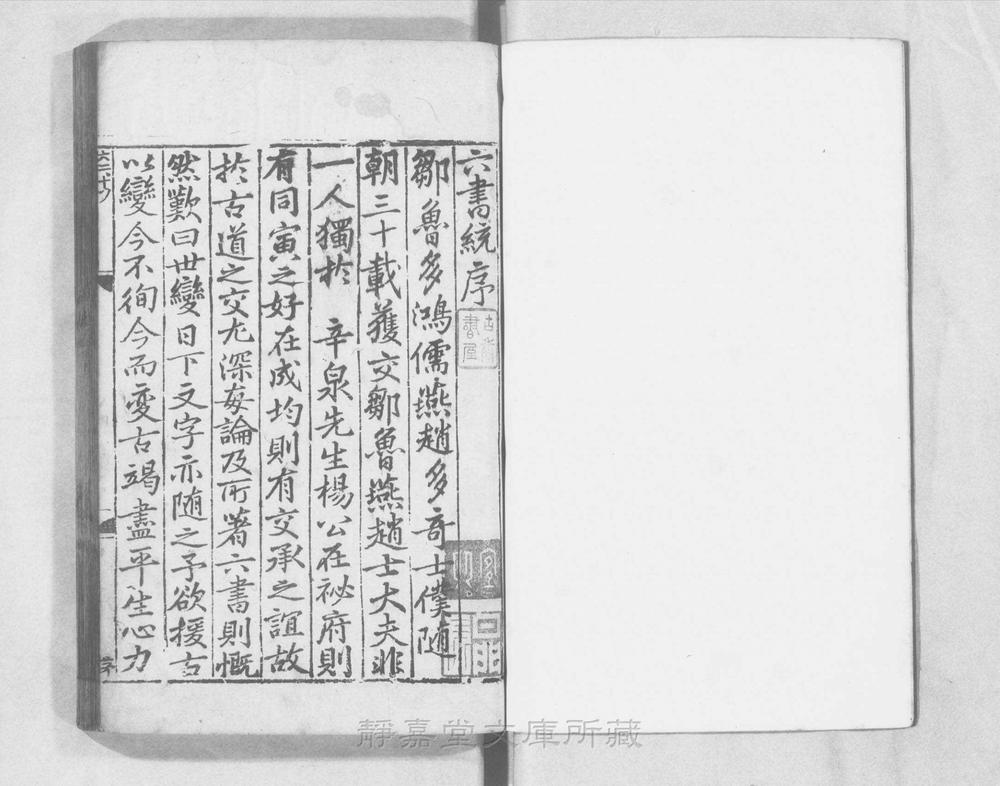 六書統序
鄒魯多鴻儒燕趙多奇士僕随
朝三十載獲交鄒魯燕趙士大夫非
一人獨扵　辛泉先生楊公在祕府則
有同寅之好在成均則有交承之誼故
扵古道之交尤深每論及所著六書則慨
然歎曰世變日下文字亦随之予欲援古
以變今不徇今而变古竭盡平生心力
靜嘉堂文庫所藏